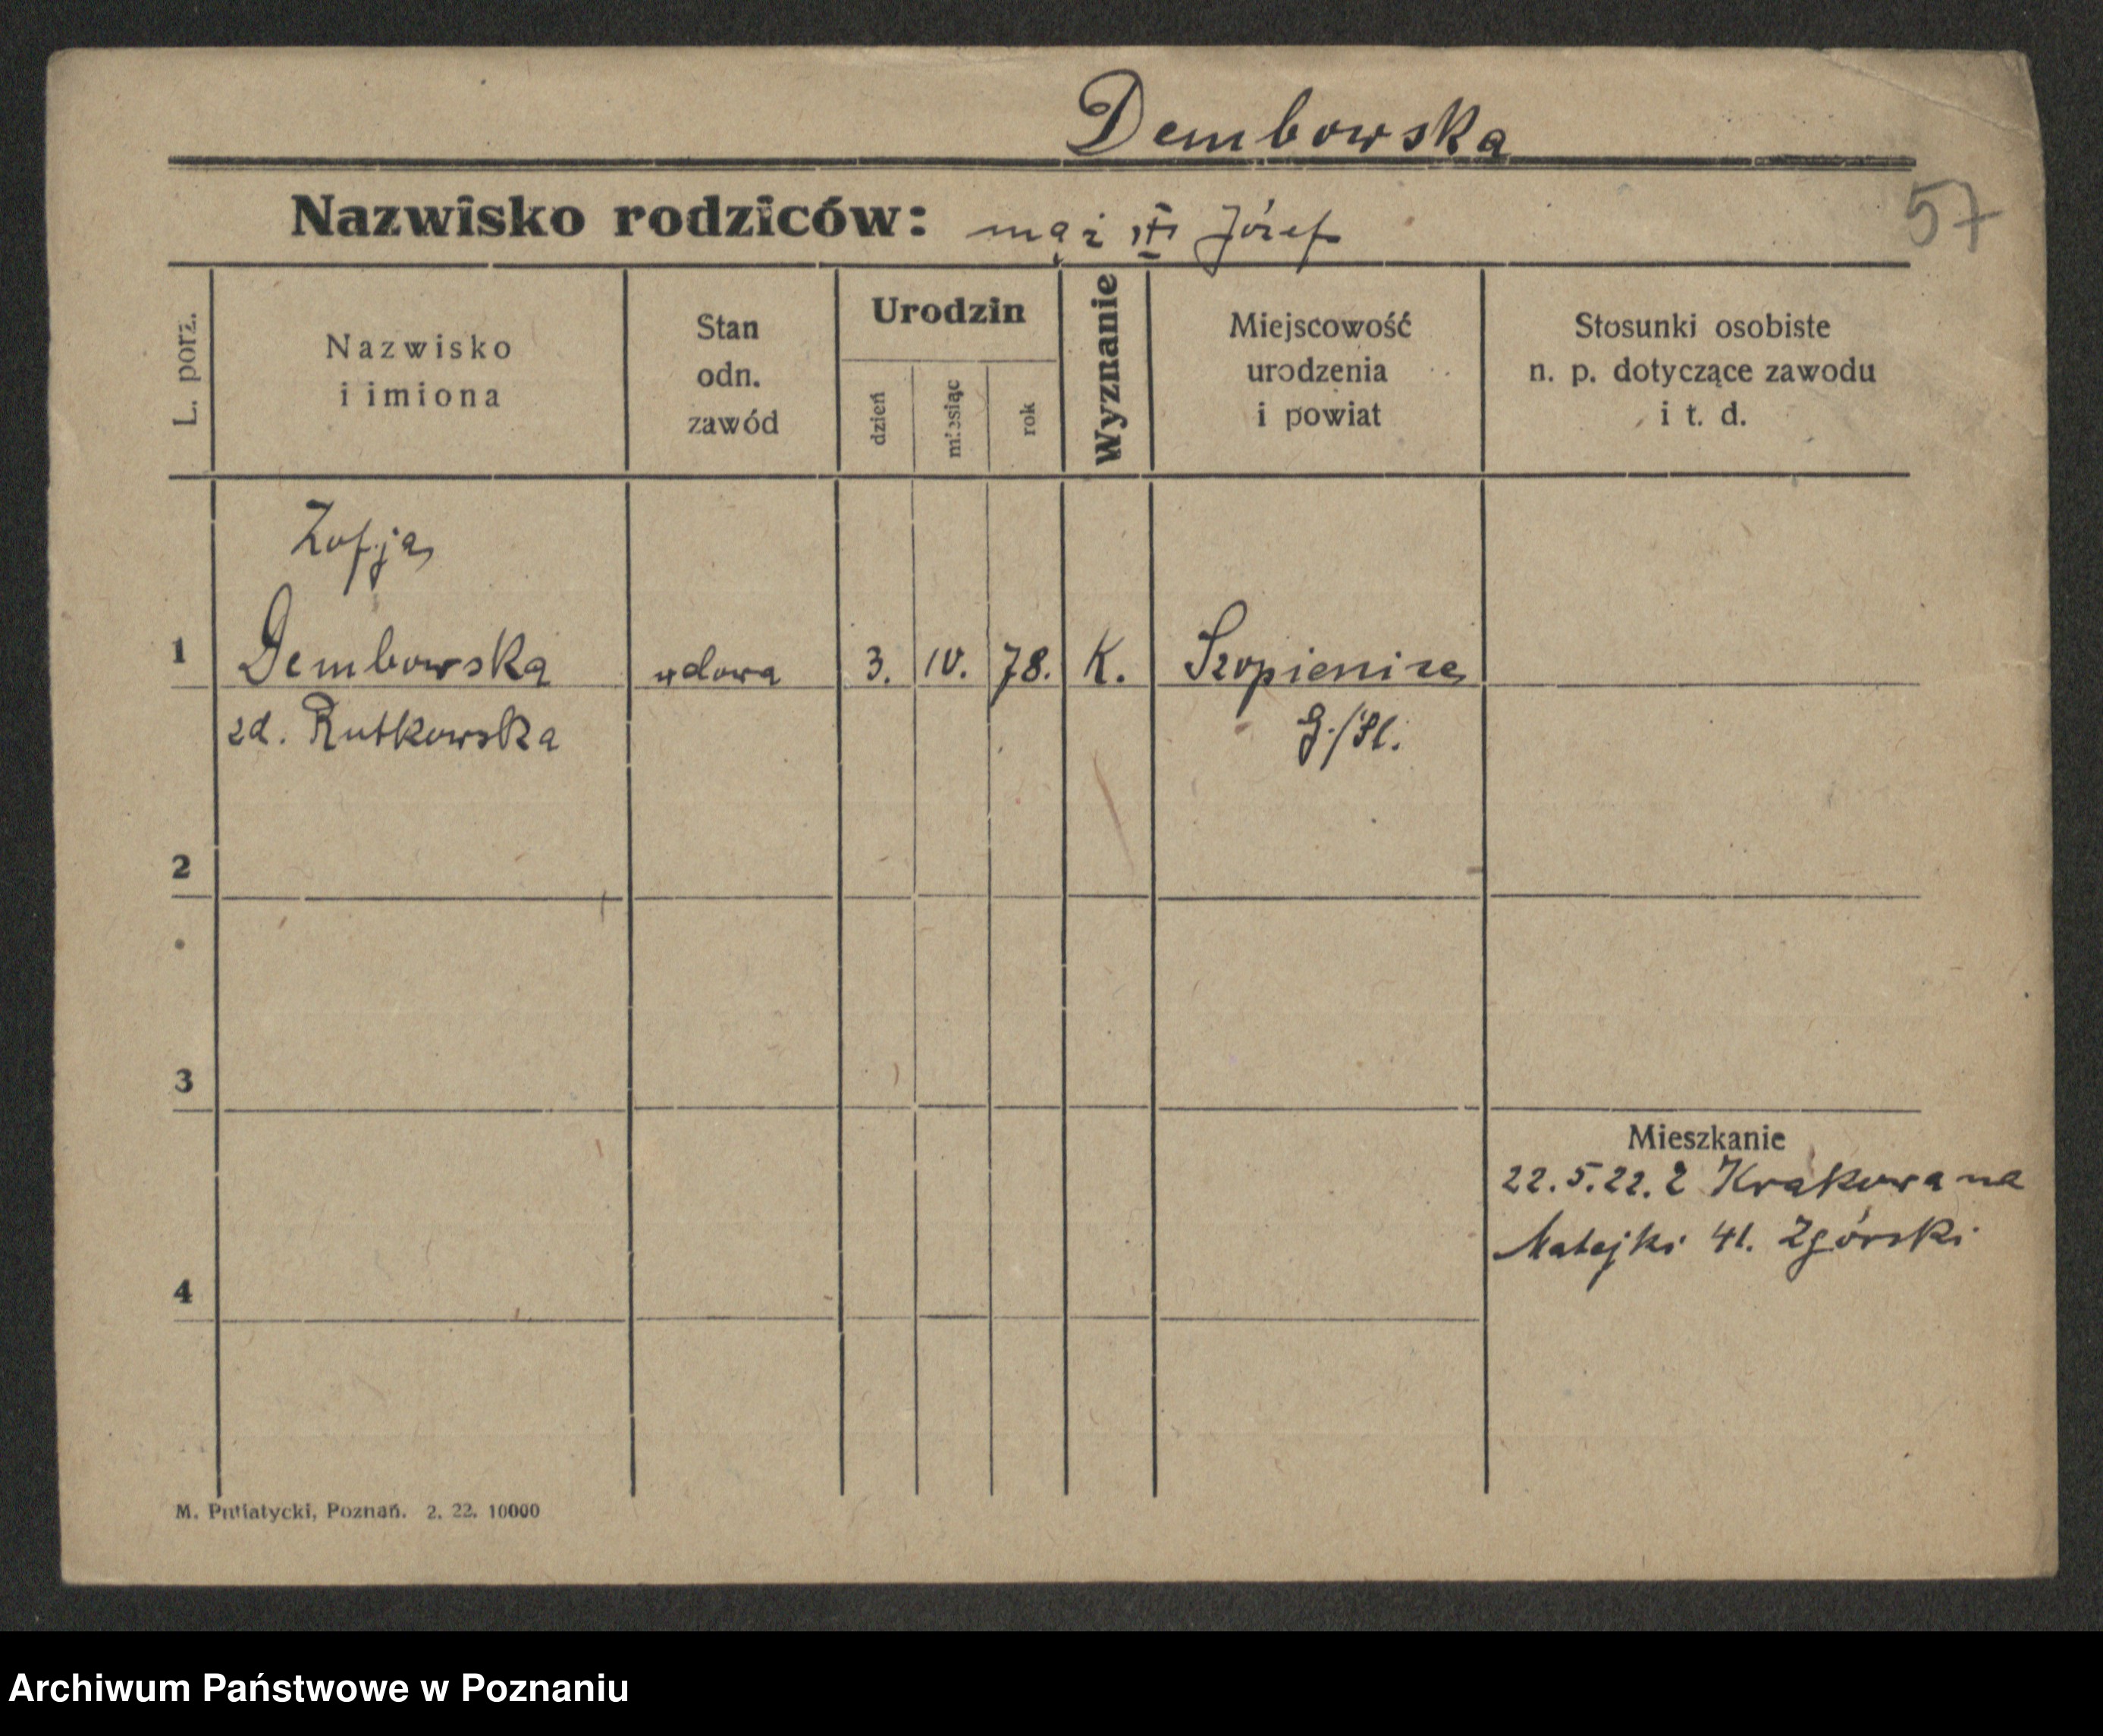 Dembowska
57
Nazwisko rodziców: mąż Józef
L. porz.
Nazwisko
i imiona
Stan
odn.
zawód
Urodzin
dzień
miesiąc
rok
Wyznanie
Miejscowość
urodzenia
i powiat
Stosunki osobiste
n. p. dotyczące zawodu
i t. d.
Zofja
1 Dembowska wdowa 3. IV. 78. K. Szopienice
zd. Rutkowska G./Śl.
2
3
Mieszkanie
22.5.22. z Krakowa na
Matejki 41. Zgórski
4
M. Putiatycki, Poznań. 2. 22. 10000
Archiwum Państwowe w Poznaniu